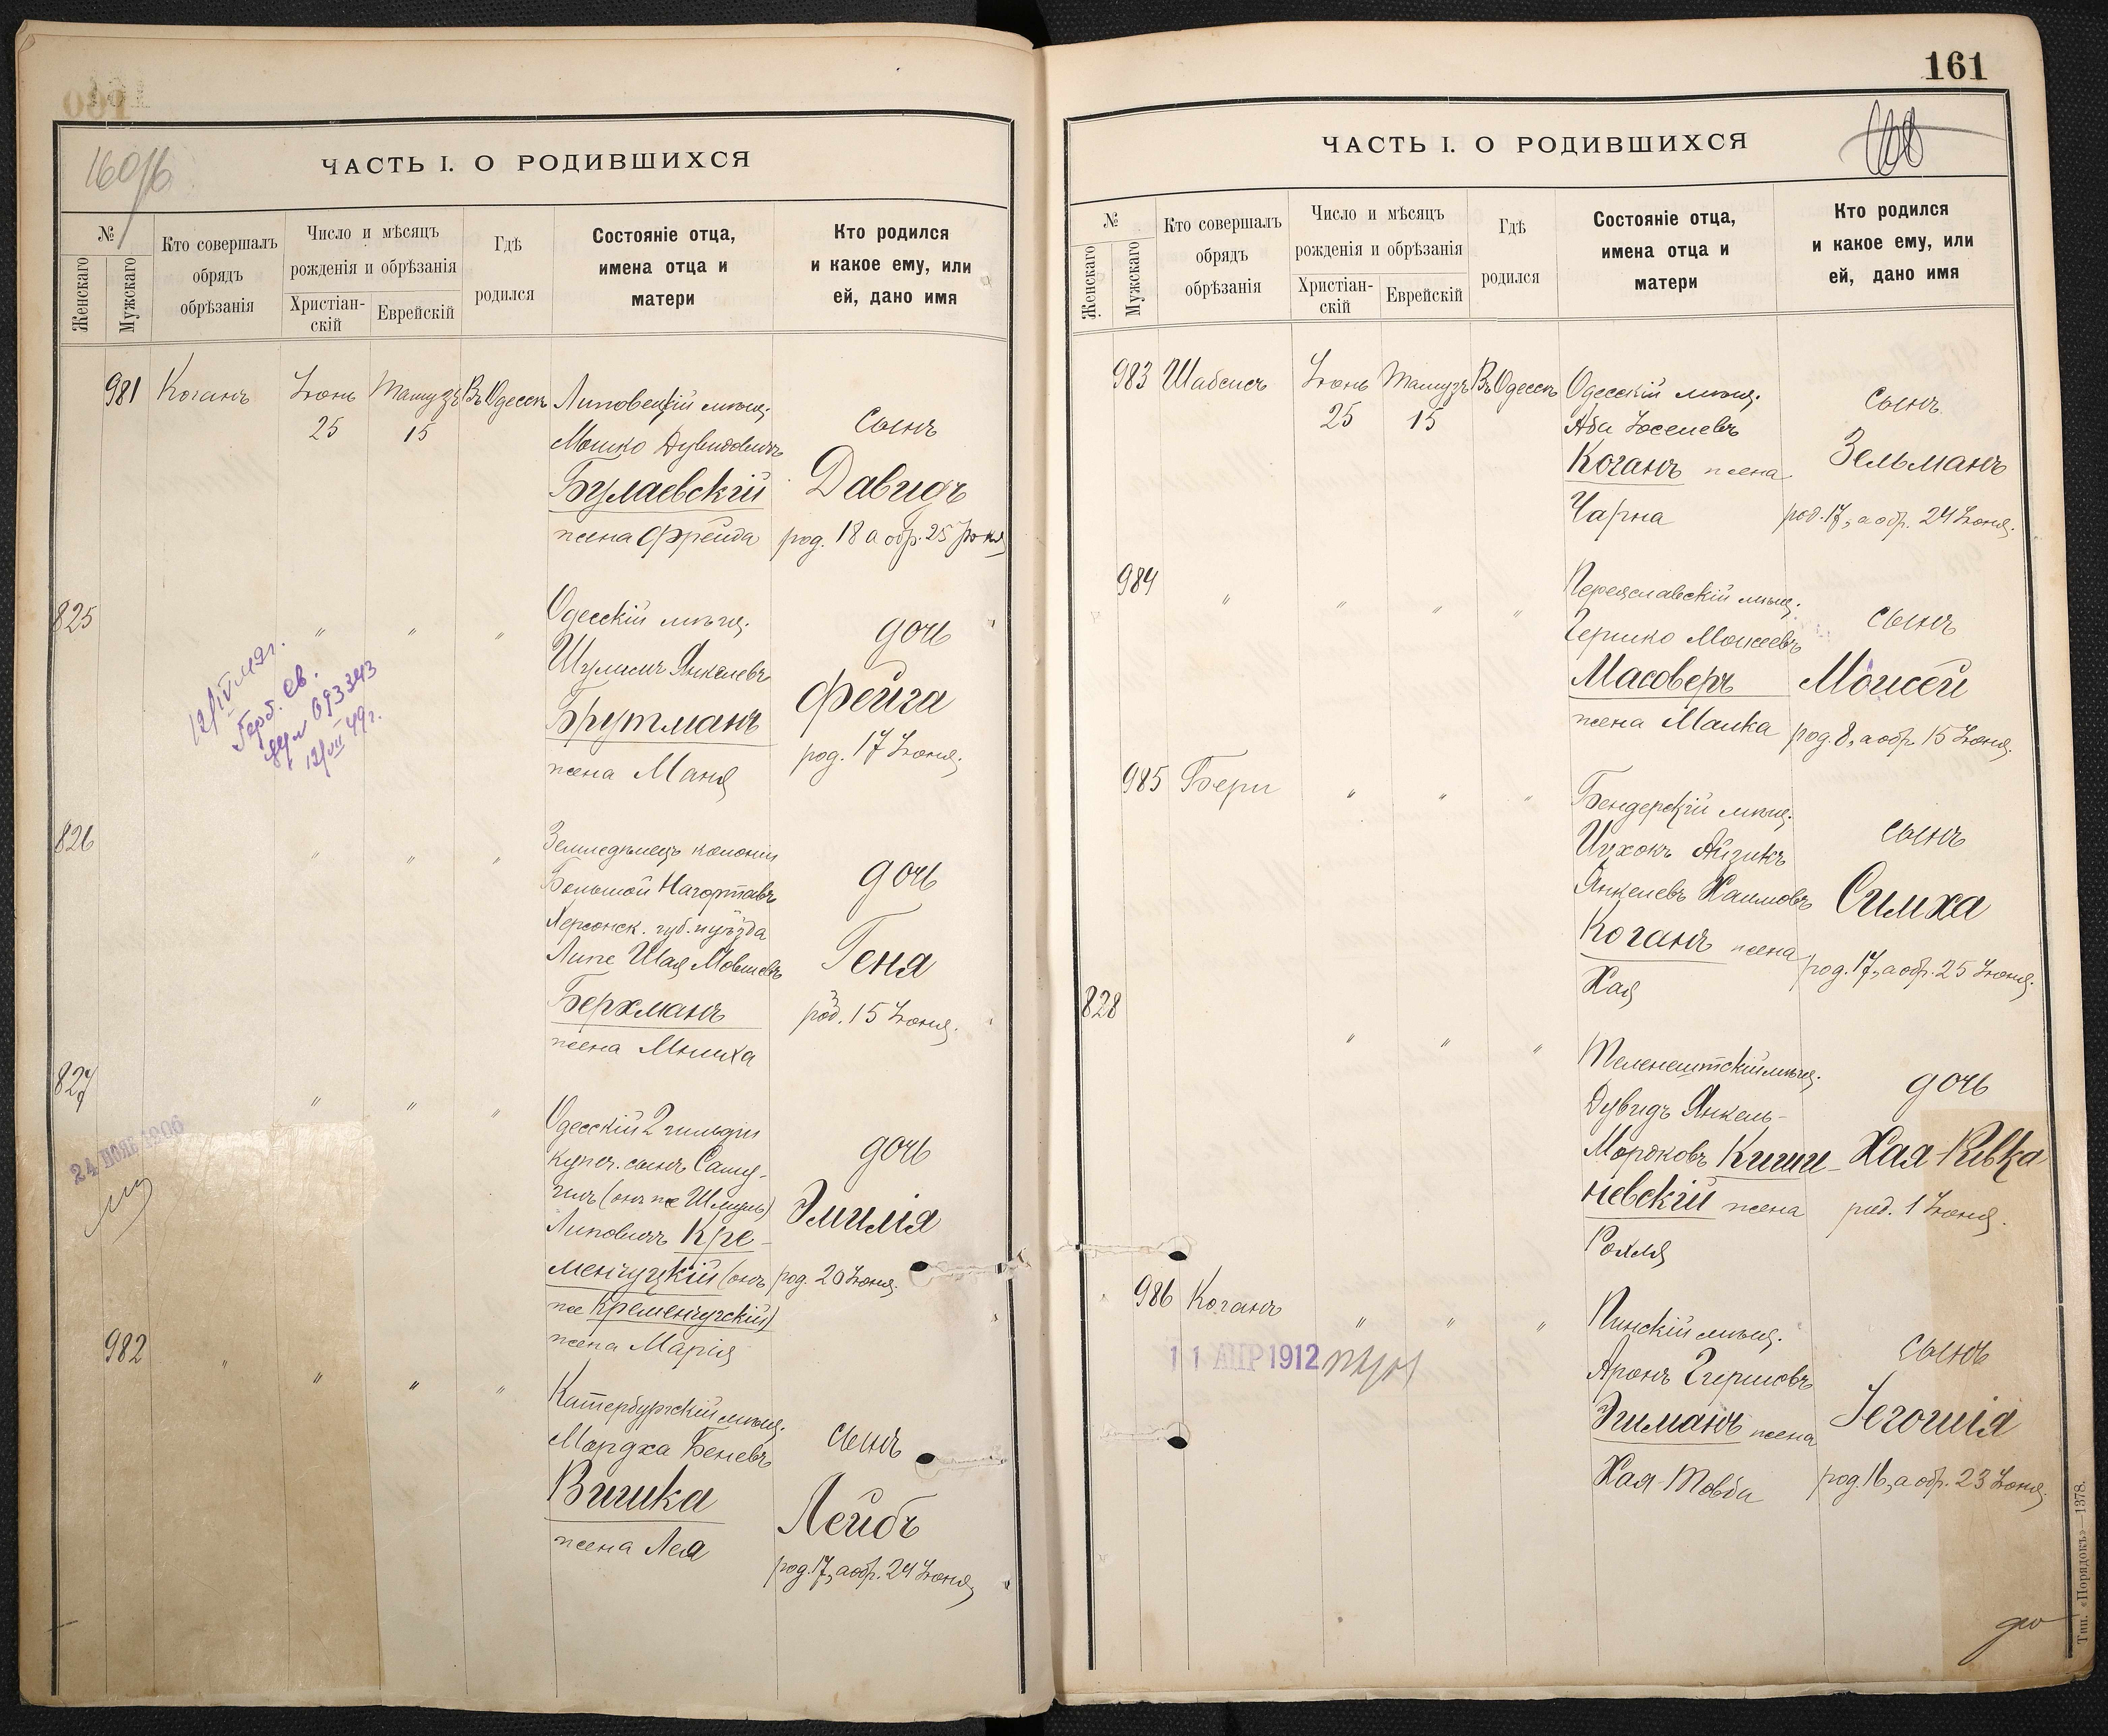 160/б
ЧАСТЬ I. О РОДИВШИХСЯ
№
Женскаго
Мужскаго
Кто совершалъ
обрядъ
обрѣзанія
Число и мѣсяцъ
рожденія и обрѣзанія
Христіан-
скій
Еврейскій
Гдѣ
родился
Состояніе отца,
имена отца и
матери
Кто родился
и какое ему, или
ей, дано имя
981 Коганъ Іюнь 25 Тамузъ 15 Въ Одессѣ
Липовецкій мѣщ.
Мошко Дувидовичъ
Булаевскій
жена Фрейда
сынъ
Давидъ
род. 18 а обр. 25 Іюня
825 " " "
12/IV 49г.
Герб. св.
093343
12/VII 49г.
Одесскій мѣщ.
Шулимъ Янкелевъ
Брутманъ
жена Маня
дочь
Фейга
род. 17 Іюня.
826 " " "
Земледѣлецъ колоніи
Большой Нагортавъ
Херсонск. губ. и уѣзда
Липе Шая Мовшевъ
Берхманъ
жена Мниха
дочь
Геня
род. 15 Іюня.
827 " " "
24 НОЯБ 1906
Одесскій 2 гильдіи
купеч. сынъ Саму-
илъ (онъ же Шмуль)
Липовичъ Кре-
менчуцкій (онъ
же Кременчугскій)
жена Марія
дочь
Эмилія
род. 20 Іюня.
982 " " " "
Катербургскій мѣщ.
Мордха Беневъ
Вишка
жена Лея
сынъ
Лейбъ
род. 17, а обр. 24 Іюня.
161
ЧАСТЬ I. О РОДИВШИХСЯ
№
Женскаго
Мужскаго
Кто совершалъ
обрядъ
обрѣзанія
Число и мѣсяцъ
рожденія и обрѣзанія
Христіан-
скій
Еврейскій
Гдѣ
родился
Состояніе отца,
имена отца и
матери
Кто родился
и какое ему, или
ей, дано имя
983 Шабсисъ Іюнь 25 Тамузъ 15 Въ Одессѣ
Одесскій мѣщ.
Аба Іоселевъ
Коганъ жена
Чарна
сынъ
Зельманъ
род. 17, а обр. 24 Іюня.
984 " " " "
Переяславскій мѣщ.
Гершко Моисеевъ
Масоверъ
жена Малка
сынъ
Моисей
род. 8, а обр. 15 Іюня.
985 Бери " " "
Бендерскій мѣщ.
Ицхокъ Айзикъ
Янкелевъ Хаимовъ
Коганъ жена
Хая
сынъ
Симха
род. 17, а обр. 25 Іюня.
828 " " "
Теленештскій мѣщ.
Дувидъ Янкель-
Мордковъ Киши-
невскій жена
Рохля
дочь
Хая-Ривка
род. 1 Іюня.
986 Коганъ " " "
11 АПР 1912
Пинскій мѣщ.
Аронъ Гершовъ
Эйманъ жена
Хая-Товба
сынъ
Іегошія
род. 16, а обр. 23 Іюня.
Тип. «Порядокъ»—1378.